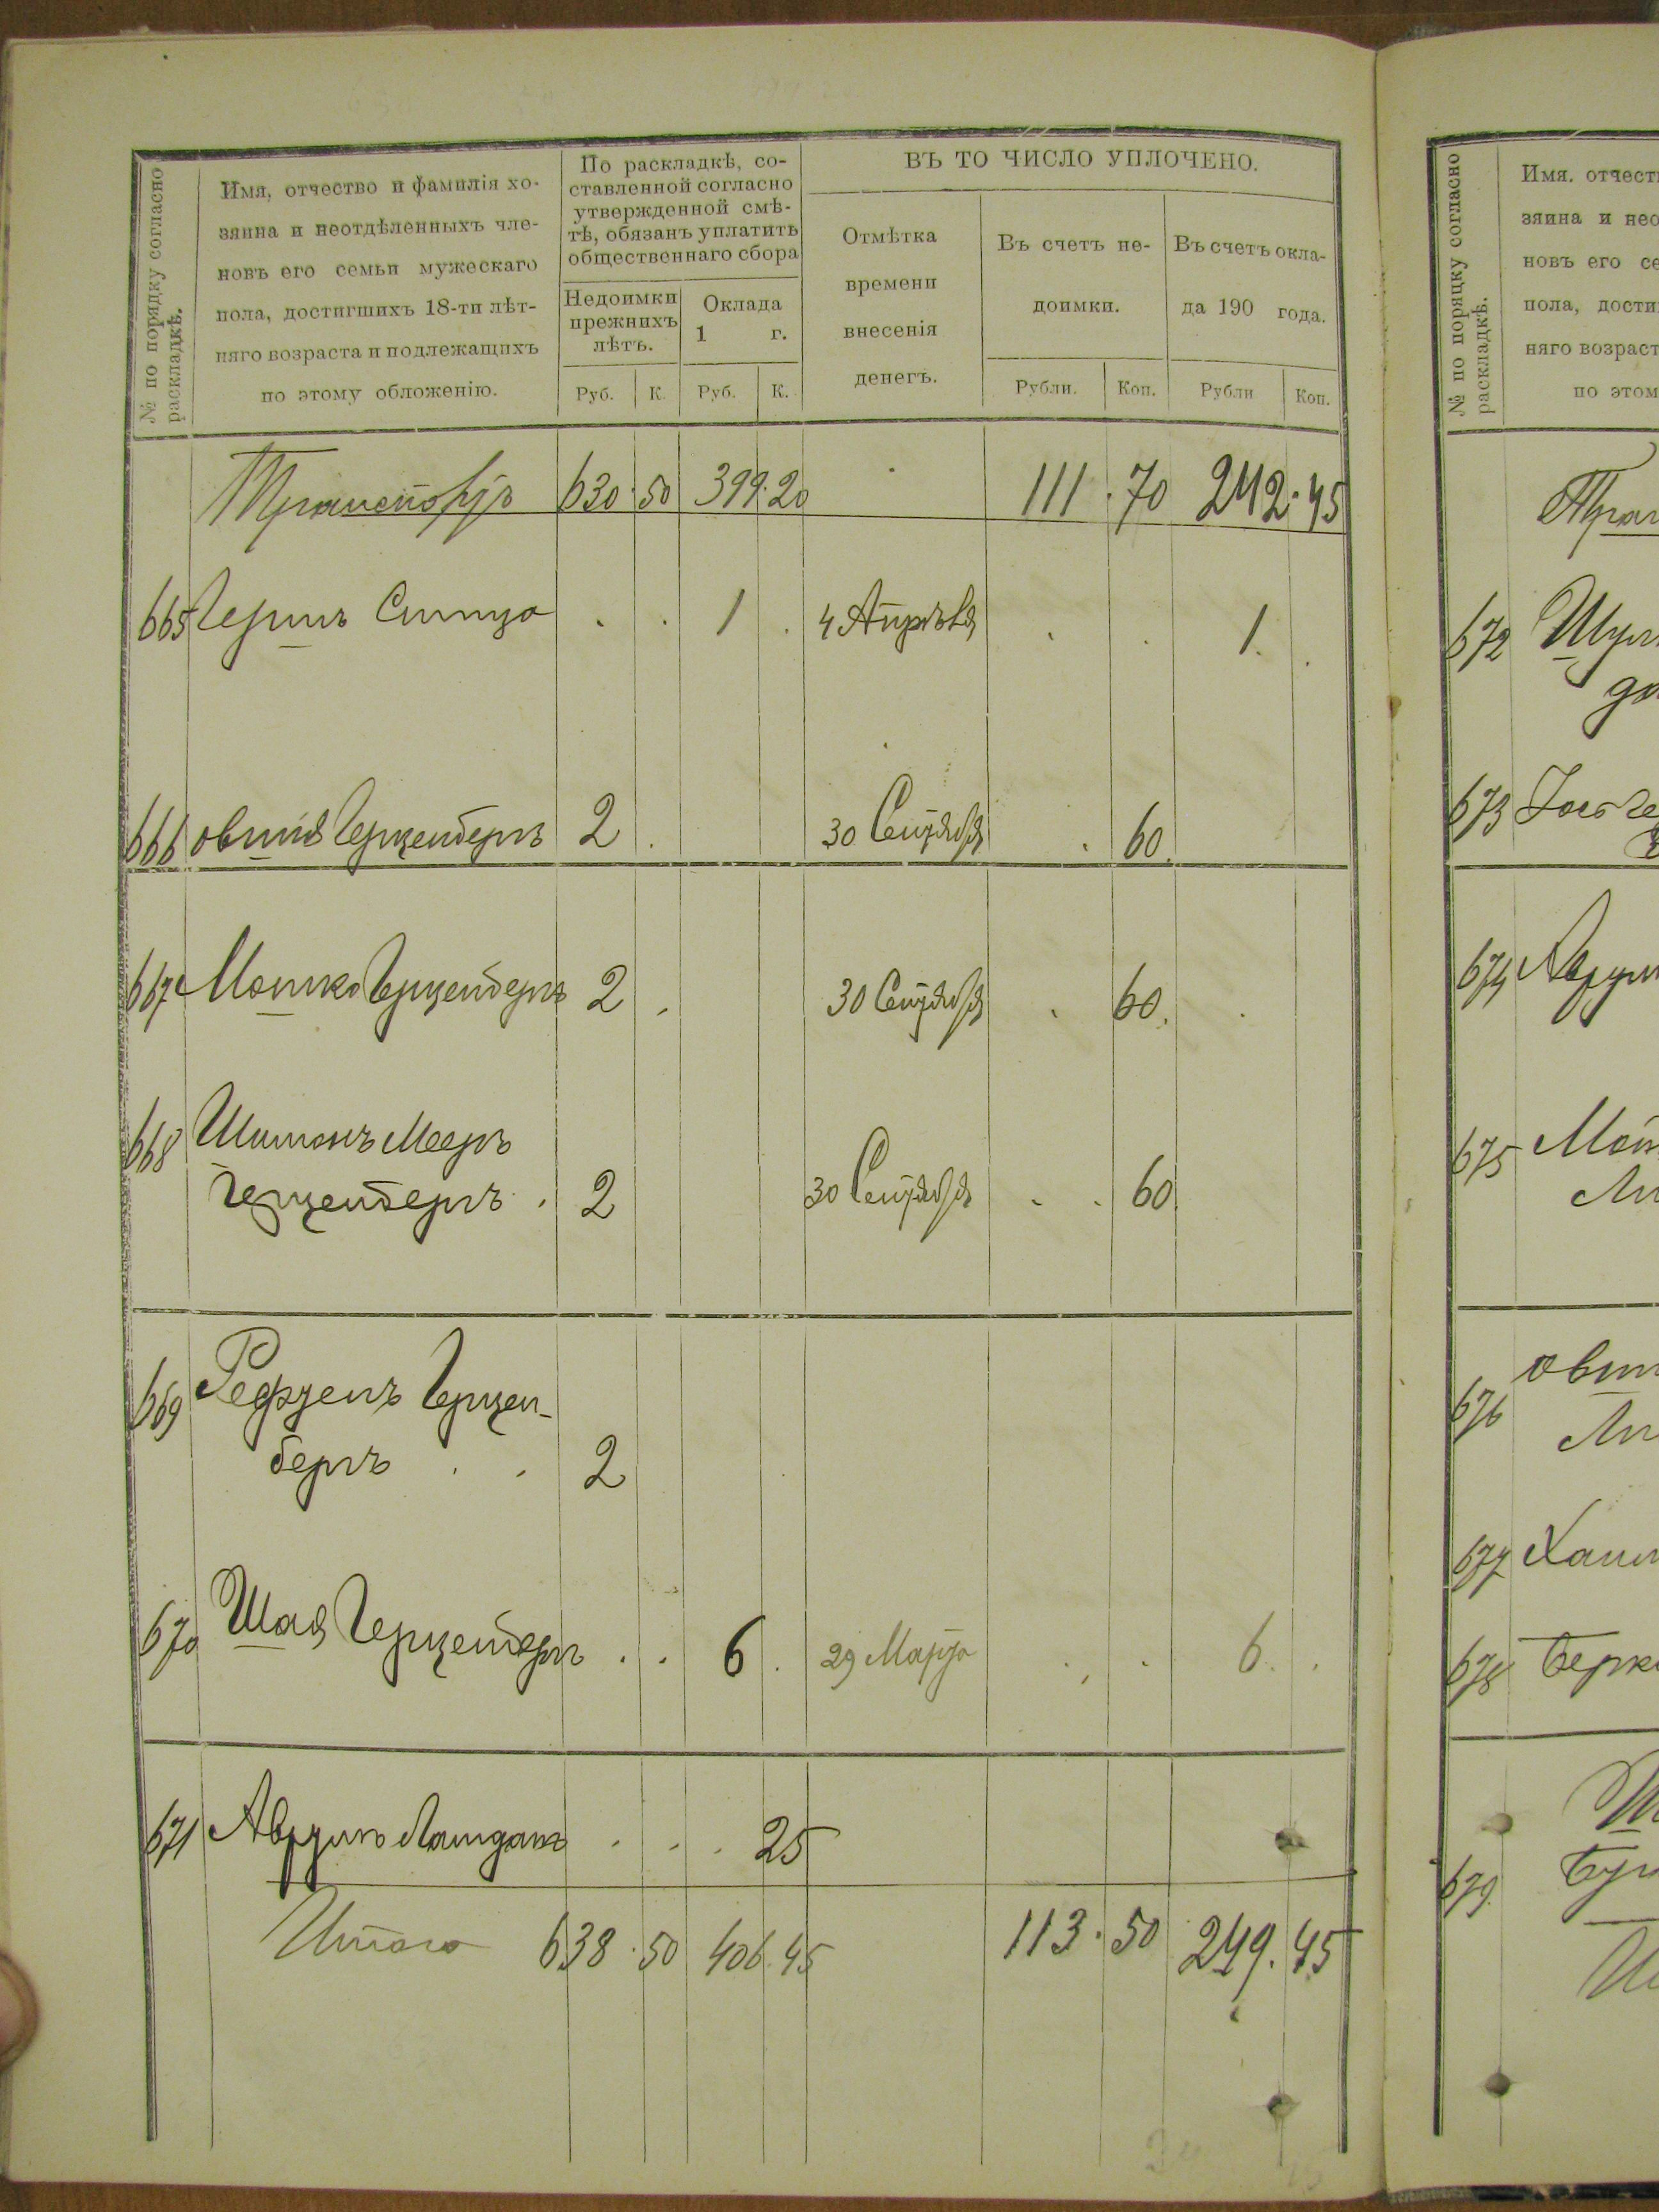 № по порядку согласно
раскладкѣ.
Имя, отчество и фамилія хо-
зяина и неотдѣленныхъ чле-
новъ его семьи мужескаго
пола, достигшихъ 18-ти лѣт-
няго возраста и подлежащихъ
по этому обложенію.
По раскладкѣ, со-
ставленной согласно
утвержденной смѣ-
тѣ, обязанъ уплатить
общественнаго сбора
Недоимки
прежнихъ
лѣтъ.
Оклада
1 г.
Руб. К. Руб. К.
ВЪ ТО ЧИСЛО УПЛОЧЕНО.
Отмѣтка
времени
внесенія
денегъ.
Въ счетъ не-
доимки.
Въ счетъ окла-
да 190 года.
Рубли. Коп. Рубли Коп.
Транспортъ 630 . 50 399. 20 111 . 70 242 . 45
665 1 4 Апрѣля 1.
666 Овшія Герценбергъ 2 30 Сентября 60.
667 Мошко Герценбергъ 2 30 Сентября 60.
668 Шимонъ Мееръ
Герценбергъ . 2 30 Сентября 60
669 Герцен-
бергъ . . 2
670 Шая Герценбергъ . . 6 . 29 Марта 6.
671 Аврумъ . . . 25
Итого 638 . 50 406. 45 113 . 50 249. 45
№ по порядку согласно
раскладкѣ.
Имя. отчест
зяина и нео
новъ его се
пола, дости
няго возраст
по этом
672
673
674
675
676
677
678 Берк
679